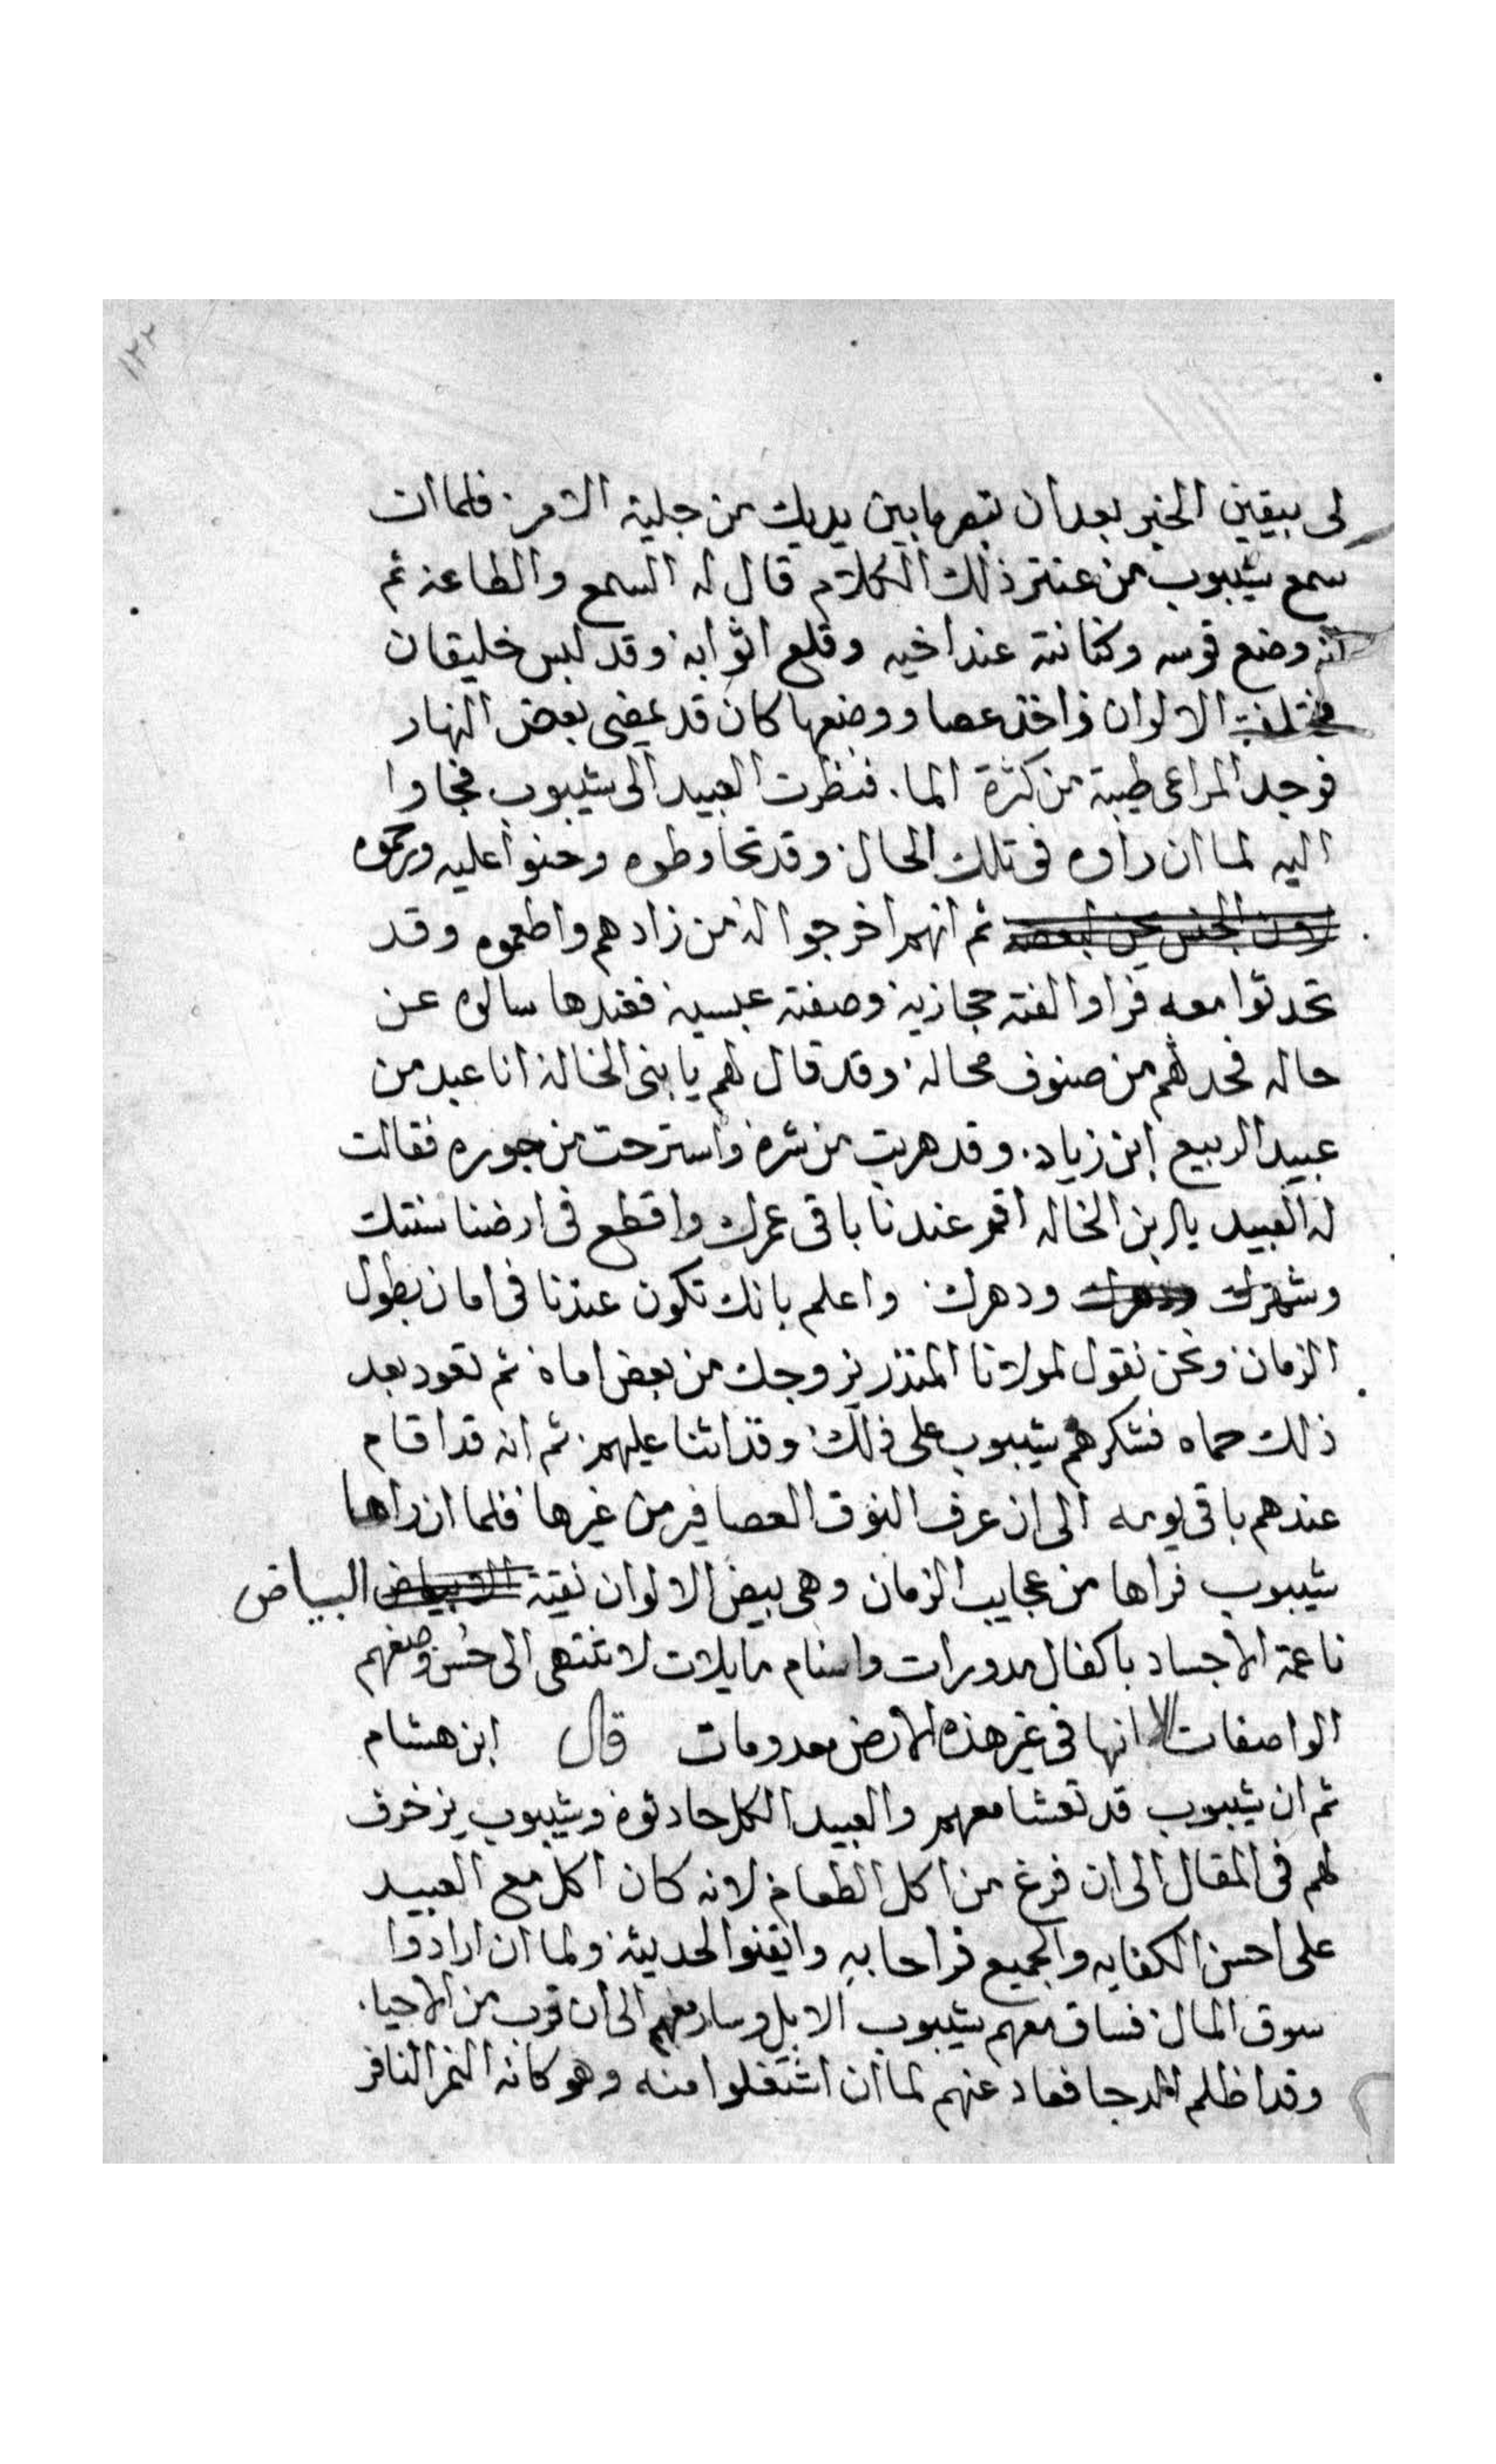 ١٢٢
لى بيقين الخبر بعد ان تبصر ما بين يديك من جلية الامر فلما ان
سمع شيبوب من عنتر ذلك الكلام قال له السمع والطاعه ثم
انه وضع قوسه وكنانته عند اخيه وقلع اثوابه وقد لبس خليقان
مختلفت الالوان واخذ عصا ووضعها كان قد مضى بعض النهار
فوجد المراعى طيبة من كثرة الما. فنظرت العبيد الى شيبوب فجاوا
اليه لما ان راوه فى تلك الحال وقد تحاوطوه وحنوا عليه ورحموه
لاون الجنس يحن لبعضه ثم انهم اخرجوا له من زادهم واطعموه وقد
تحدثوا معه فراوا لفته حجازيه وصفته عبسيه فعندها سالوه عن
حاله فحدثهم من صنوف محاله وقد قال لهم يا بنى الخاله انا عبد من
عبيد الربيع ابن زياد. وقد هربت من شره واسترحت من جوره فقالت
له العبيد يا بن الخاله اقم عندنا باقى عمرك واقطع فى ارضنا سنتك
وشهرك ودهرك ودهرك واعلم بانك تكون عندنا فى امان بطول
الزمان ونحن نقول لمولانا المنذر يزوجك من بعض اماه ثم تعود بعد
ذلك حماه فشكرهم شيبوب على ذلك وقد اثنا عليهم ثم انه قد اقام
عندهم باقى يومه الى ان عرف النوق العصافير من غيرها فلما ان راها
شيبوب فراها من عجايب الزمان وهى بيض الالوان نقية الابياض البياض
ناعمة الاجساد باكفال مدورات واسنام مايلات لا تنتهى الى حسن وصفهم
الواصفات لانها فى غير هذه الارض معدومات قال ابن هشام
ثم ان شيبوب قد تعشا معهم والعبيد الكل حادثوه وشيبوب يزخرف
لهم فى المقال الى ان فرغ من اكل الطعام لانه كان اكل مع العبيد
على احسن الكفايه والجميع فراحا به وايقنوا لحديثه ولما ان ارادوا
سوق المال فساق معهم شيبوب الابل وسار معهم الى ان قرب من الاحيا.
وقد اظلم الدجا فعاد عنهم لما ان اشتغلوا منه وهو كانه النمر النافر